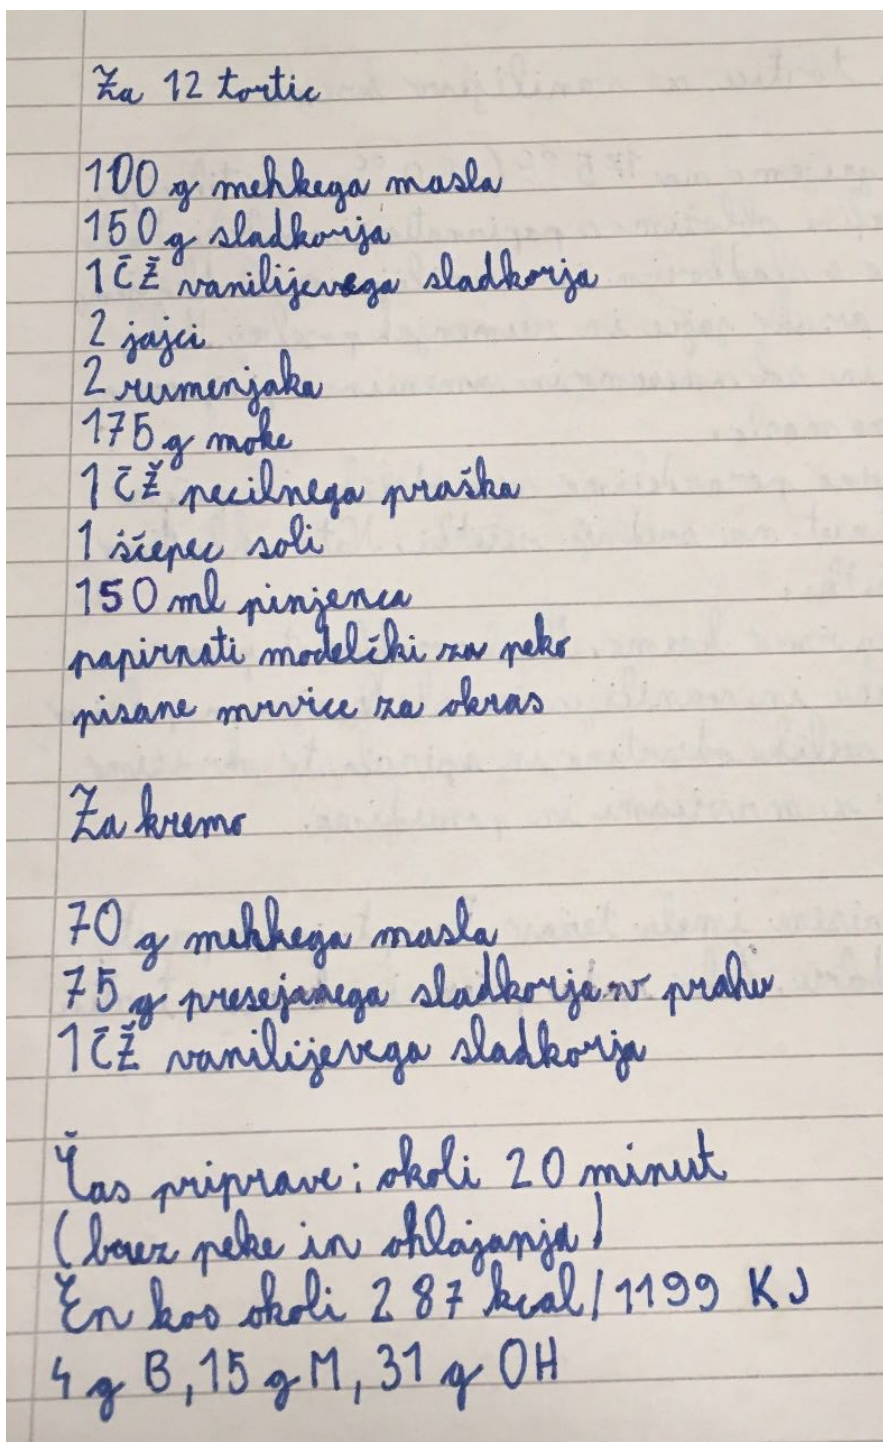 Za 12 tortic
100 g mehkega masla
150 g sladkorja
1 ČŽ vanilijevega sladkorja
2 jajci
2 rumenjaka
175 g moke
1 ČŽ pecilnega praška
1 ščepec soli
150 ml pinjenca
papirnati modelčki za peko
pisane mrvice za okras
Za kremo
70 g mehkega masla
75 g presejanega sladkorja v prahu
1 ČŽ vanilijevega sladkorja
Čas priprave: okoli 20 minut
(brez peke in ohlajanja)
En kos okoli 287 kcal/1199 KJ
4 g B, 15 g M, 31 g OH